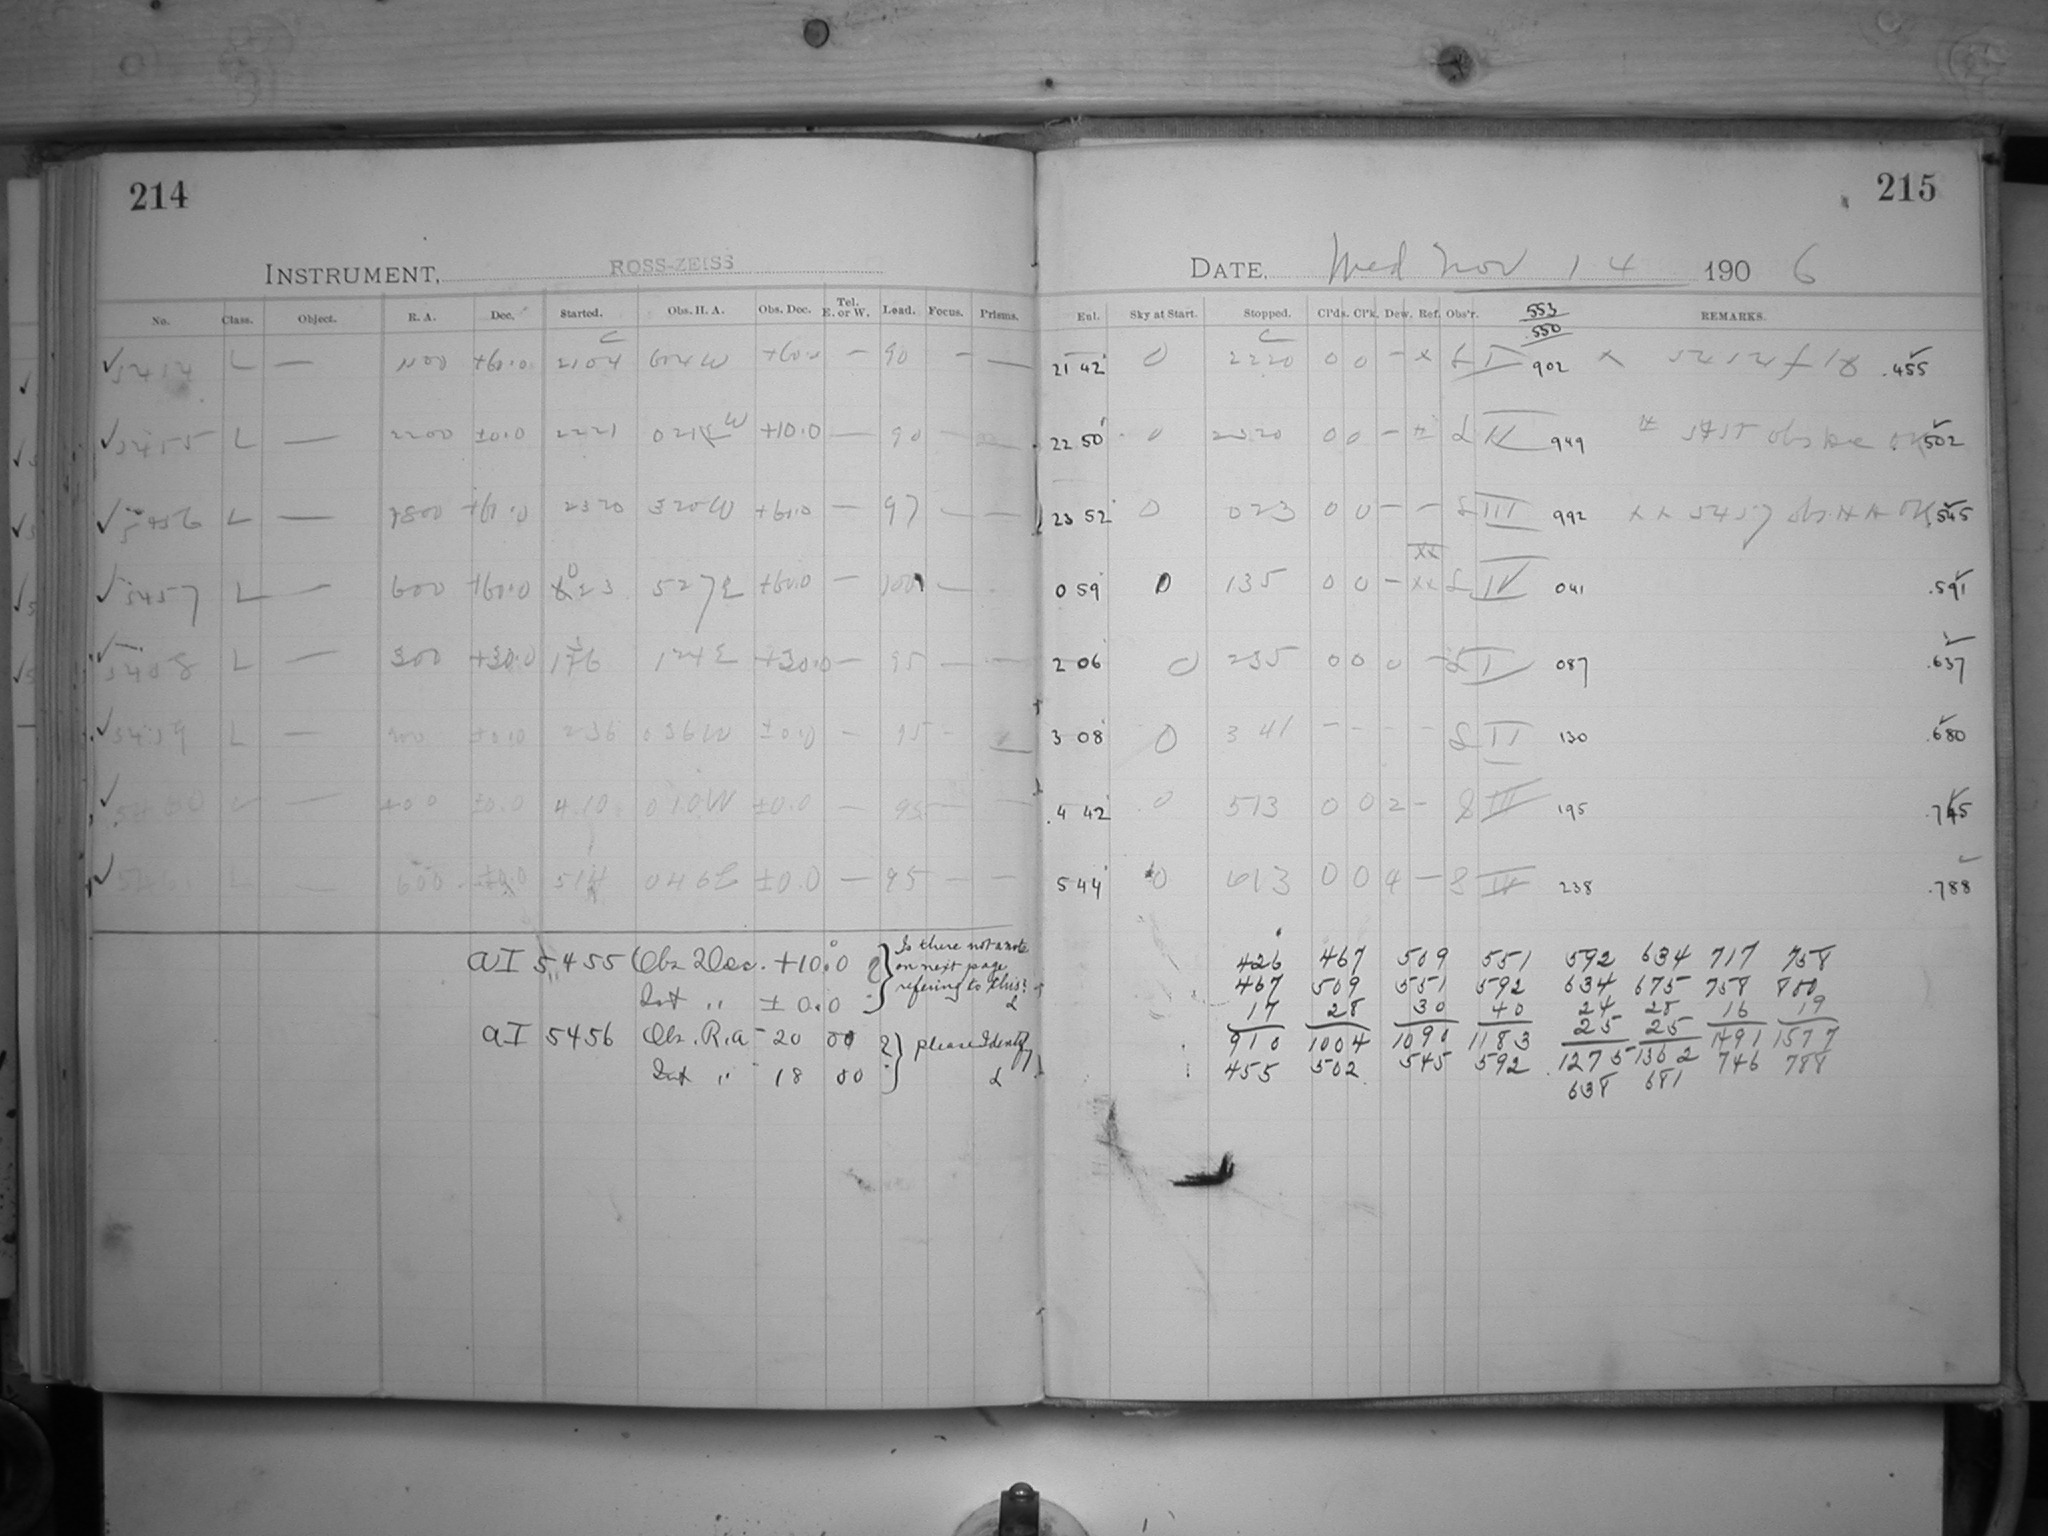 214
INSTRUMENT, ROSS-ZEISS
No. Class. Object. R. A. Dec. Started. Obs. H. A. Obs. Dec. Tel. E. or W. Load. Focus. Prisms.
✓ L — +60.0 2104 604W +60.0 — 90 - —
✓5455 L — 2200 ±0.0 2221 +10.0 — 90 - —
✓5456 L — 1800 +60.0 2320 320W +60.0 — 97 - —
✓5457 L — 600 +60.0 023 527E +60.0 — 100 -
✓5458 L — 300 +30.0 124E +30.0 — 95 - -
✓5459 L — ±0.0 236 036W ±0.0 — 95 -
✓5460 L — 400 ±0.0 4 10 010W ±0.0 — 95 — -
✓5461 L — 600 ±0.0 514 046E ±0.0 — 95 - —
aI 5455 Obs Dec. +10.0 ? Is there not a note on next page refering to this?
Int " ±0.0
aI 5456 Obs. R.a - 20 00 ? please Identify
Int " - 18 00
215
DATE, Wed Nov 14 1906
Ent. Sky at Start. Stopped. Cl'ds. Cl'k. Dew. Ref. Obs'r. 553 550 REMARKS.
21 42 0 2220 0 0 - x I 902 x .455
22 50 0 2320 0 0 - II 949 5455 obs dec OK .502
23 52 0 023 0 0 - - III 992 x x 5457 obs OK .545
xx
0 59 0 135 0 0 - xx IV 041 .591
2 06 0 235 0 0 0 - I 087 .637
3 08 0 3 41 - - - - II 130 .680
4 42 0 513 0 0 2 - III 195 .745
5 44 0 613 0 0 4 - IV 238 .788
426 467 509 551 592 634 717 758
467 509 551 592 634 675 758 800
17 28 30 40 24 25 16 19
25 25
910 1004 1090 1183 1275 1362 1491 1577
455 502 545 592 638 681 746 788